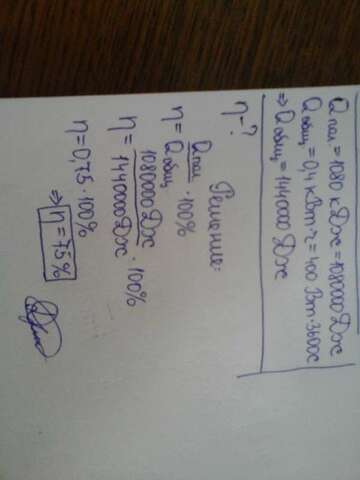 Qпол = 1080 кДж = 1080000 Дж
Qобщ = 0,4 кВт·ч = 400 Вт·3600с
⇒ Qобщ = 1440000 Дж
η-?
Решение:
η = Qпол / Qобщ · 100%
η = 1080000 Дж / 1440000 Дж · 100%
η = 0,75 · 100%
⇒ η = 75%